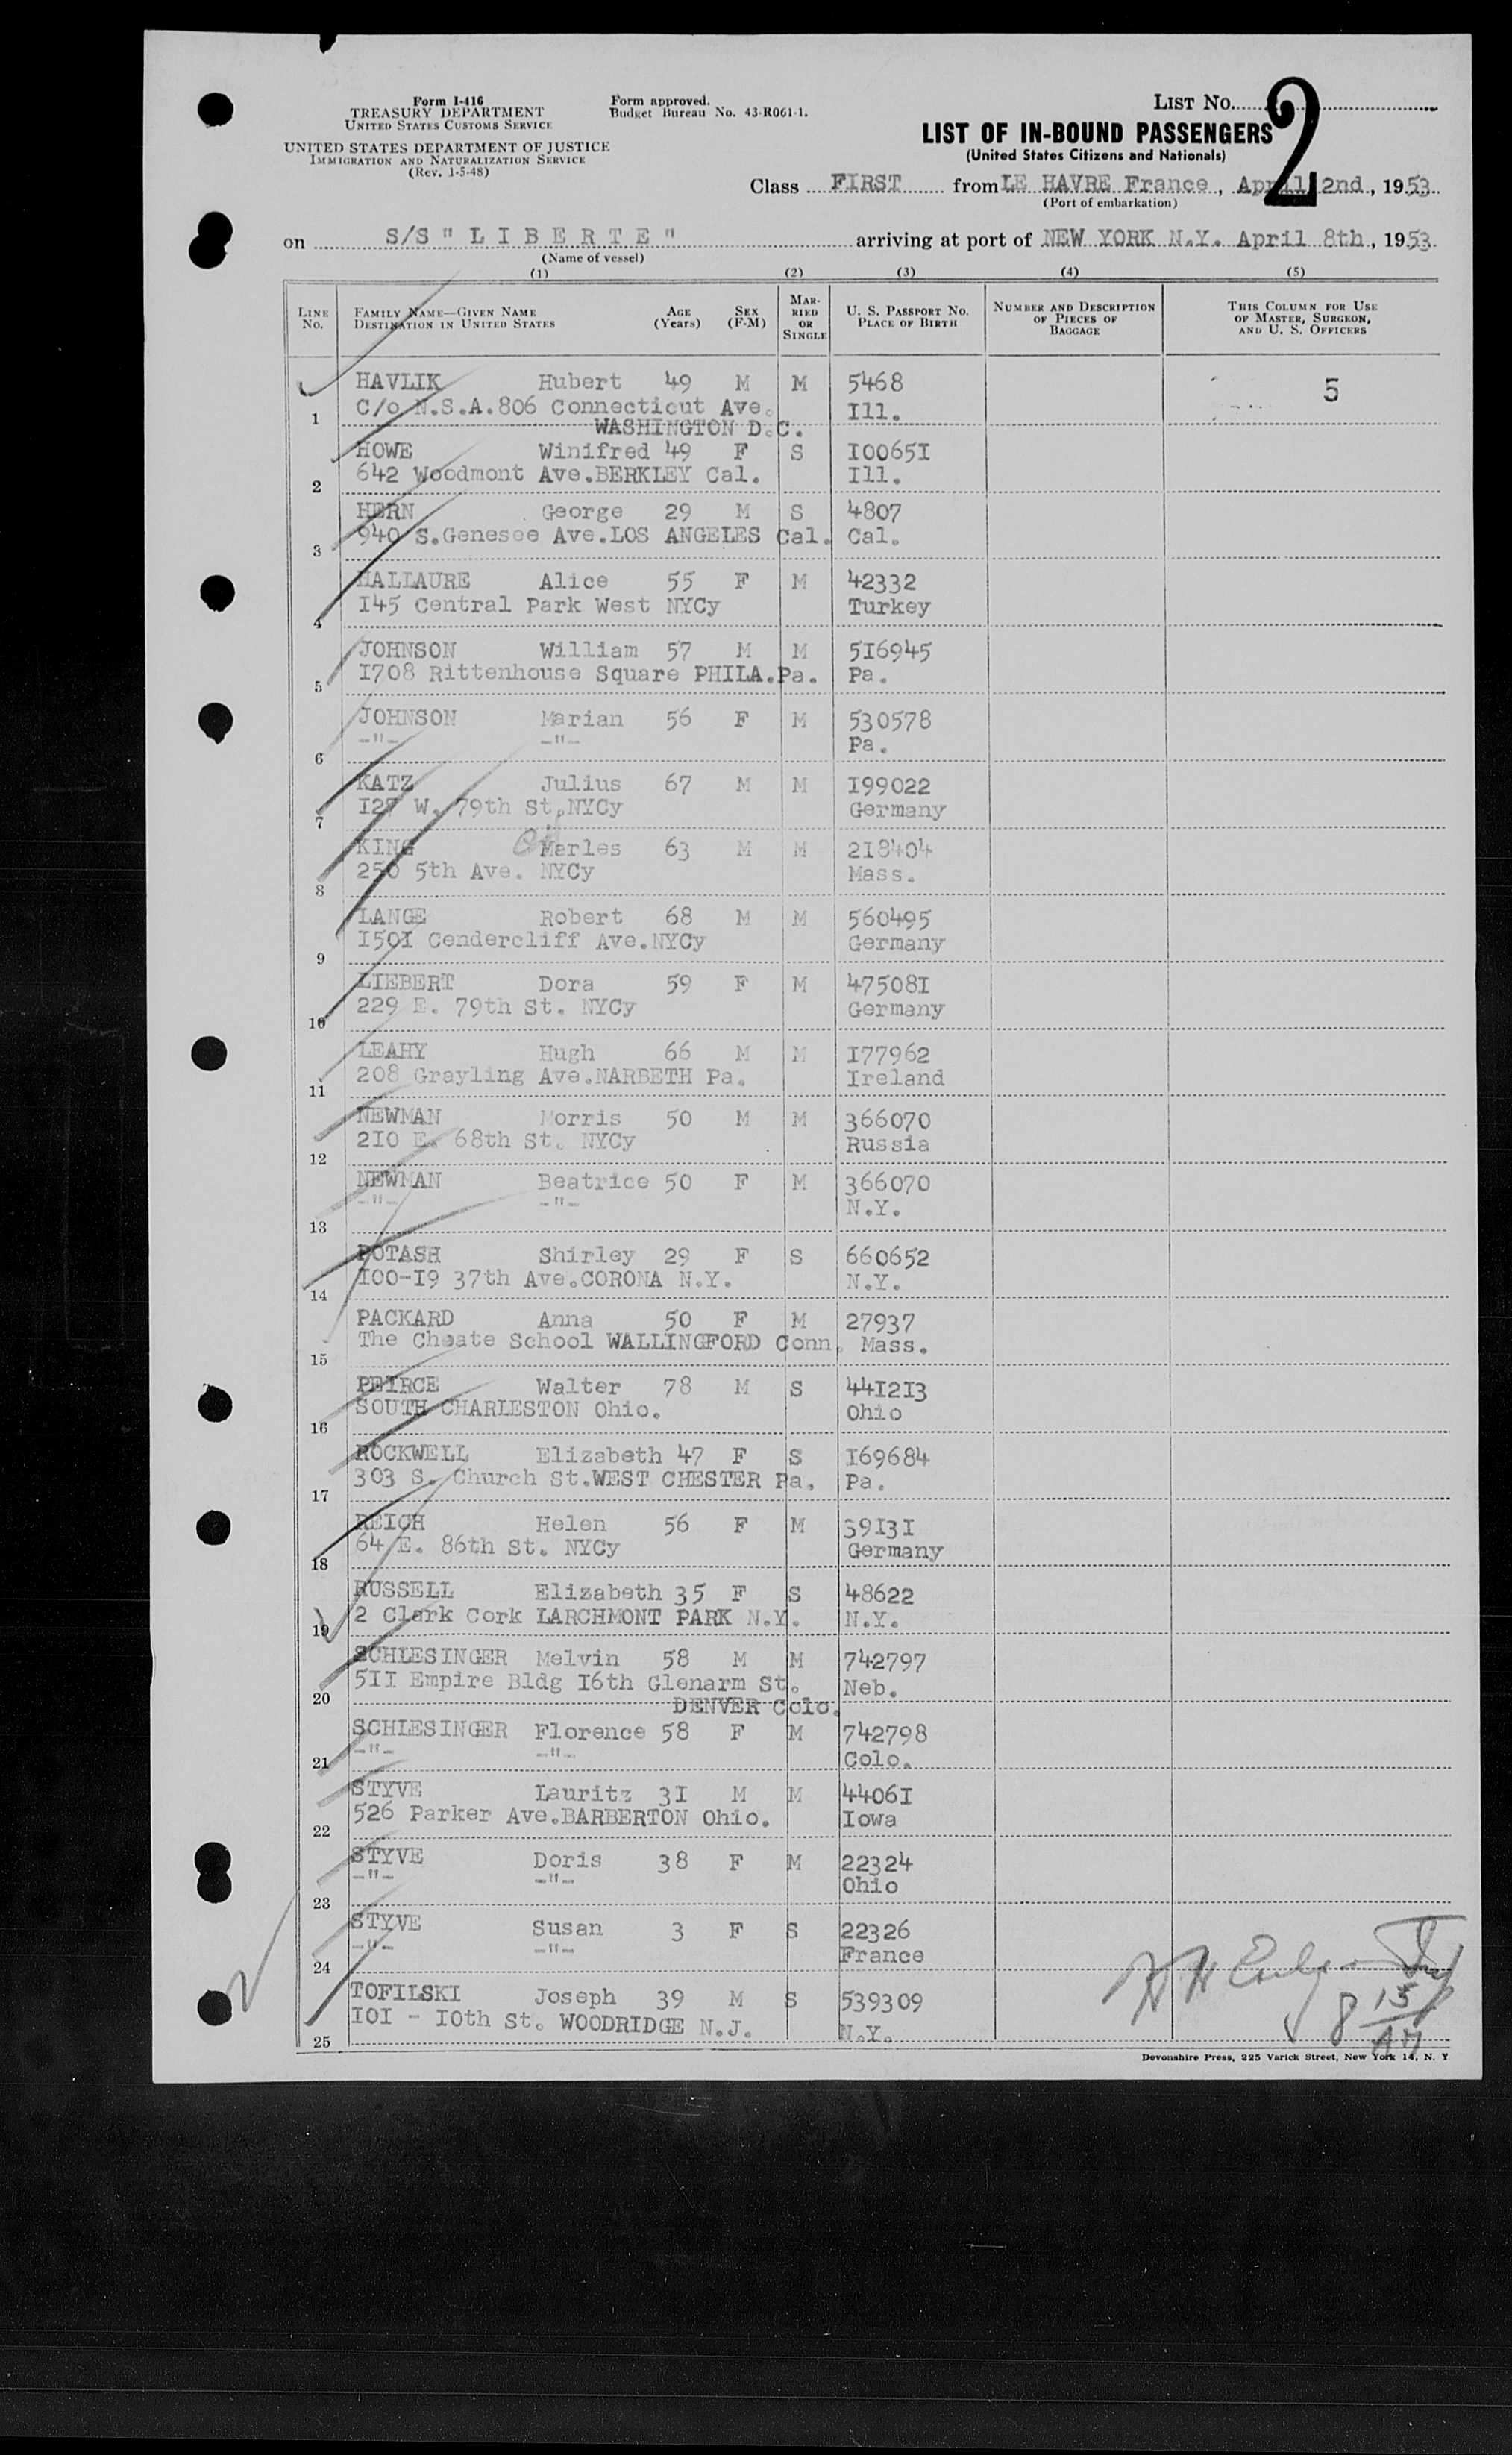 Form I-416
TREASURY DEPARTMENT
UNITED STATES CUSTOMS SERVICE
UNITED STATES DEPARTMENT OF JUSTICE
IMMIGRATION AND NATURALIZATION SERVICE
(Rev. 1-5-48)
Form approved.
Budget Bureau No. 43-R061-1.
LIST No. 2
LIST OF IN-BOUND PASSENGERS
(United States Citizens and Nationals)
Class FIRST from LE HAVRE France, April 2nd, 1953
(Port of embarkation)
on S/S "LIBERTE" arriving at port of NEW YORK N.Y. April 8th, 1953
(Name of vessel)
(1) (2) (3) (4) (5)
LINE No. FAMILY NAME—GIVEN NAME DESTINATION IN UNITED STATES AGE (Years) SEX (F-M) MARRIED OR SINGLE U. S. PASSPORT No. PLACE OF BIRTH NUMBER AND DESCRIPTION OF PIECES OF BAGGAGE THIS COLUMN FOR USE OF MASTER, SURGEON, AND U. S. OFFICERS
HAVLIK Hubert 49 M M 5468 5
1 C/o N.S.A.806 Connecticut Ave. Ill.
WASHINGTON D.C.
HOWE Winifred 49 F S I0065I
2 642 Woodmont Ave.BERKLEY Cal. Ill.
HERN George 29 M S 4807
3 940 S.Genesee Ave.LOS ANGELES Cal. Cal.
HALLAURE Alice 55 F M 42332
4 I45 Central Park West NYCy Turkey
JOHNSON William 57 M M 5I6945
5 I708 Rittenhouse Square PHILA.Pa. Pa.
JOHNSON Marian 56 F M 530578
6 -"- -"- Pa.
KATZ Julius 67 M M I99022
7 I27 W. 79th St.NYCy Germany
KING Charles 63 M M 2I8404
8 250 5th Ave. NYCy Mass.
LANGE Robert 68 M M 560495
9 I50I Cendercliff Ave.NYCy Germany
LIEBERT Dora 59 F M 47508I
10 229 E. 79th St. NYCy Germany
LEAHY Hugh 66 M M I77962
11 208 Grayling Ave.NARBETH Pa. Ireland
NEWMAN Morris 50 M M 366070
12 2I0 E. 68th St. NYCy Russia
NEWMAN Beatrice 50 F M 366070
13 -"- -"- N.Y.
POTASH Shirley 29 F S 660652
14 I00-I9 37th Ave.CORONA N.Y. N.Y.
PACKARD Anna 50 F M 27937
15 The Choate School WALLINGFORD Conn. Mass.
PEIRCE Walter 78 M S 44I2I3
16 SOUTH CHARLESTON Ohio. Ohio
ROCKWELL Elizabeth 47 F S I69684
17 303 S. Church St.WEST CHESTER Pa. Pa.
REICH Helen 56 F M 39I3I
18 64 E. 86th St. NYCy Germany
RUSSELL Elizabeth 35 F S 48622
19 2 Clark Cork LARCHMONT PARK N.Y. N.Y.
SCHLESINGER Melvin 58 M M 742797
20 5II Empire Bldg I6th Glenarm St. Neb.
DENVER Colo.
SCHLESINGER Florence 58 F M 742798
21 -"- -"- Colo.
STYVE Lauritz 3I M M 4406I
22 526 Parker Ave.BARBERTON Ohio. Iowa
STYVE Doris 38 F M 22324
23 -"- -"- Ohio
STYVE Susan 3 F S 22326
24 -"- -"- France
TOFILSKI Joseph 39 M S 539309
25 I0I - I0th St. WOODRIDGE N.J. N.Y.
8 15 AM
Devonshire Press, 225 Varick Street, New York 14, N. Y